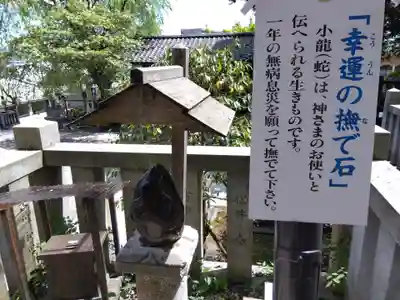 「幸運の撫で石」
こううん
な
小龍(蛇)は、神さまのお使いと
伝へられる生きものです。
一年の無病息災を願って撫でて下さい。